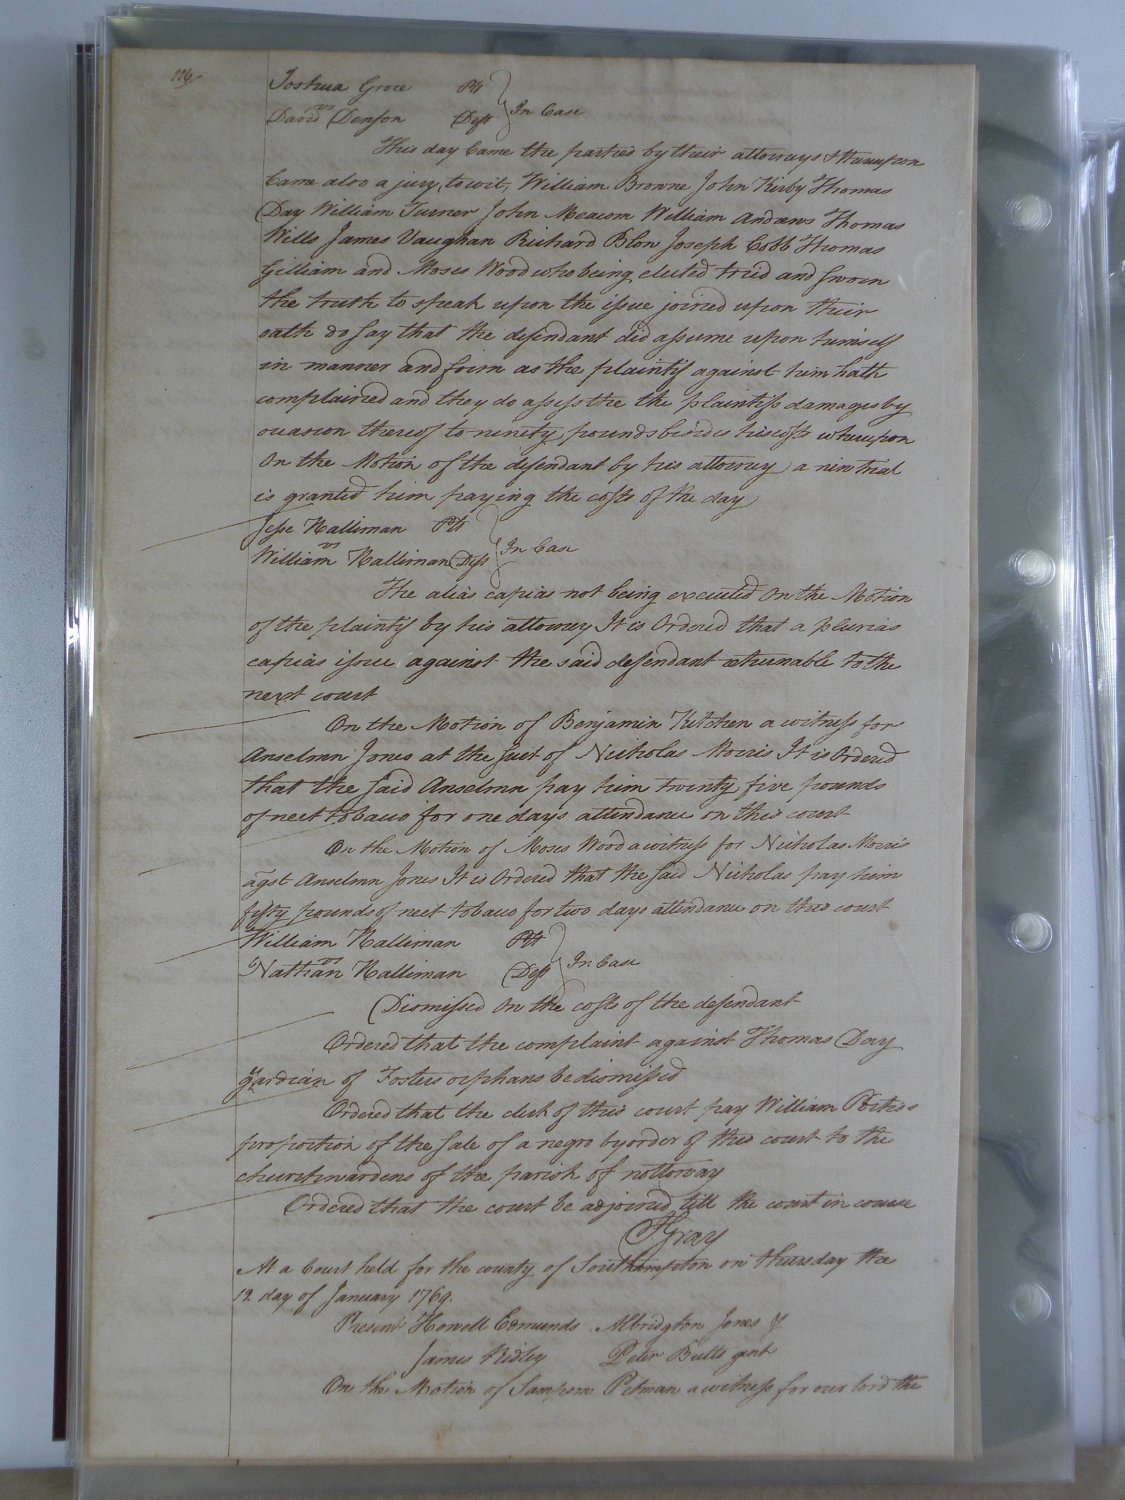 Joshua Grove Plt
vs In Case
David Denson Deft
This day Came the parties by their attorneys & thereupon
Came also a jury, to wit, William Browne John Kirby Thomas
Day William Turner John Meacom William Andrews Thomas
Wills James Vaughan Richard Blow Joseph Cobb Thomas
Gilliam and Moses Wood who being elected tried and sworn
the truth to speak upon the issue joined upon their
oath do say that the defendant did assume upon himself
in manner and form as the plaintif against him hath
complained and they do assess the the plaintifs damages by
occasion thereof to ninety pounds besides his costs whereupon
On the Motion of the defendant by his attorney a new trial
is granted him paying the costs of the day
Jesse Halliman Plt
vs In Case
William Halliman Deft
The alias capias not being executed On the Motion
of the plaintif by his attorney It is Ordered that a plurias
capias issue against the said defendant returnable to the
next court
On the Motion of Benjamin Kitchen a witness for
Anselmn Jones at the suit of Nicholas Morris It is Ordered
that the said Anselmn pay him twenty five pounds
of neet tobacco for one days attendance on this court
On the Motion of Moses Wood a witness for Nicholas Morris
agst Anselmn Jones It is Ordered that the said Nicholas pay him
fifty pounds of neet tobacco for two days attendance on this court
William Halliman Plt
vs In Case
Nathan Halliman Deft
Dismissed On the costs of the defendant
Ordered that the complaint against Thomas Day
gardian of Fosters orphans be dismissed
Ordered that the clerk of this court pay William
proportion of the sale of a negro by order of this court to the
churchwardens of the parish of nottoway
Ordered that the court be adjoined till the court in course
Gray
At a Court held for the county of Southampton on thursday the
12 day of January 1769.
Present Howell Edmunds Albridgton Jones
James Ridley Peter Butts gent
On the Motion of Sampson Pitman a witness for our lord the